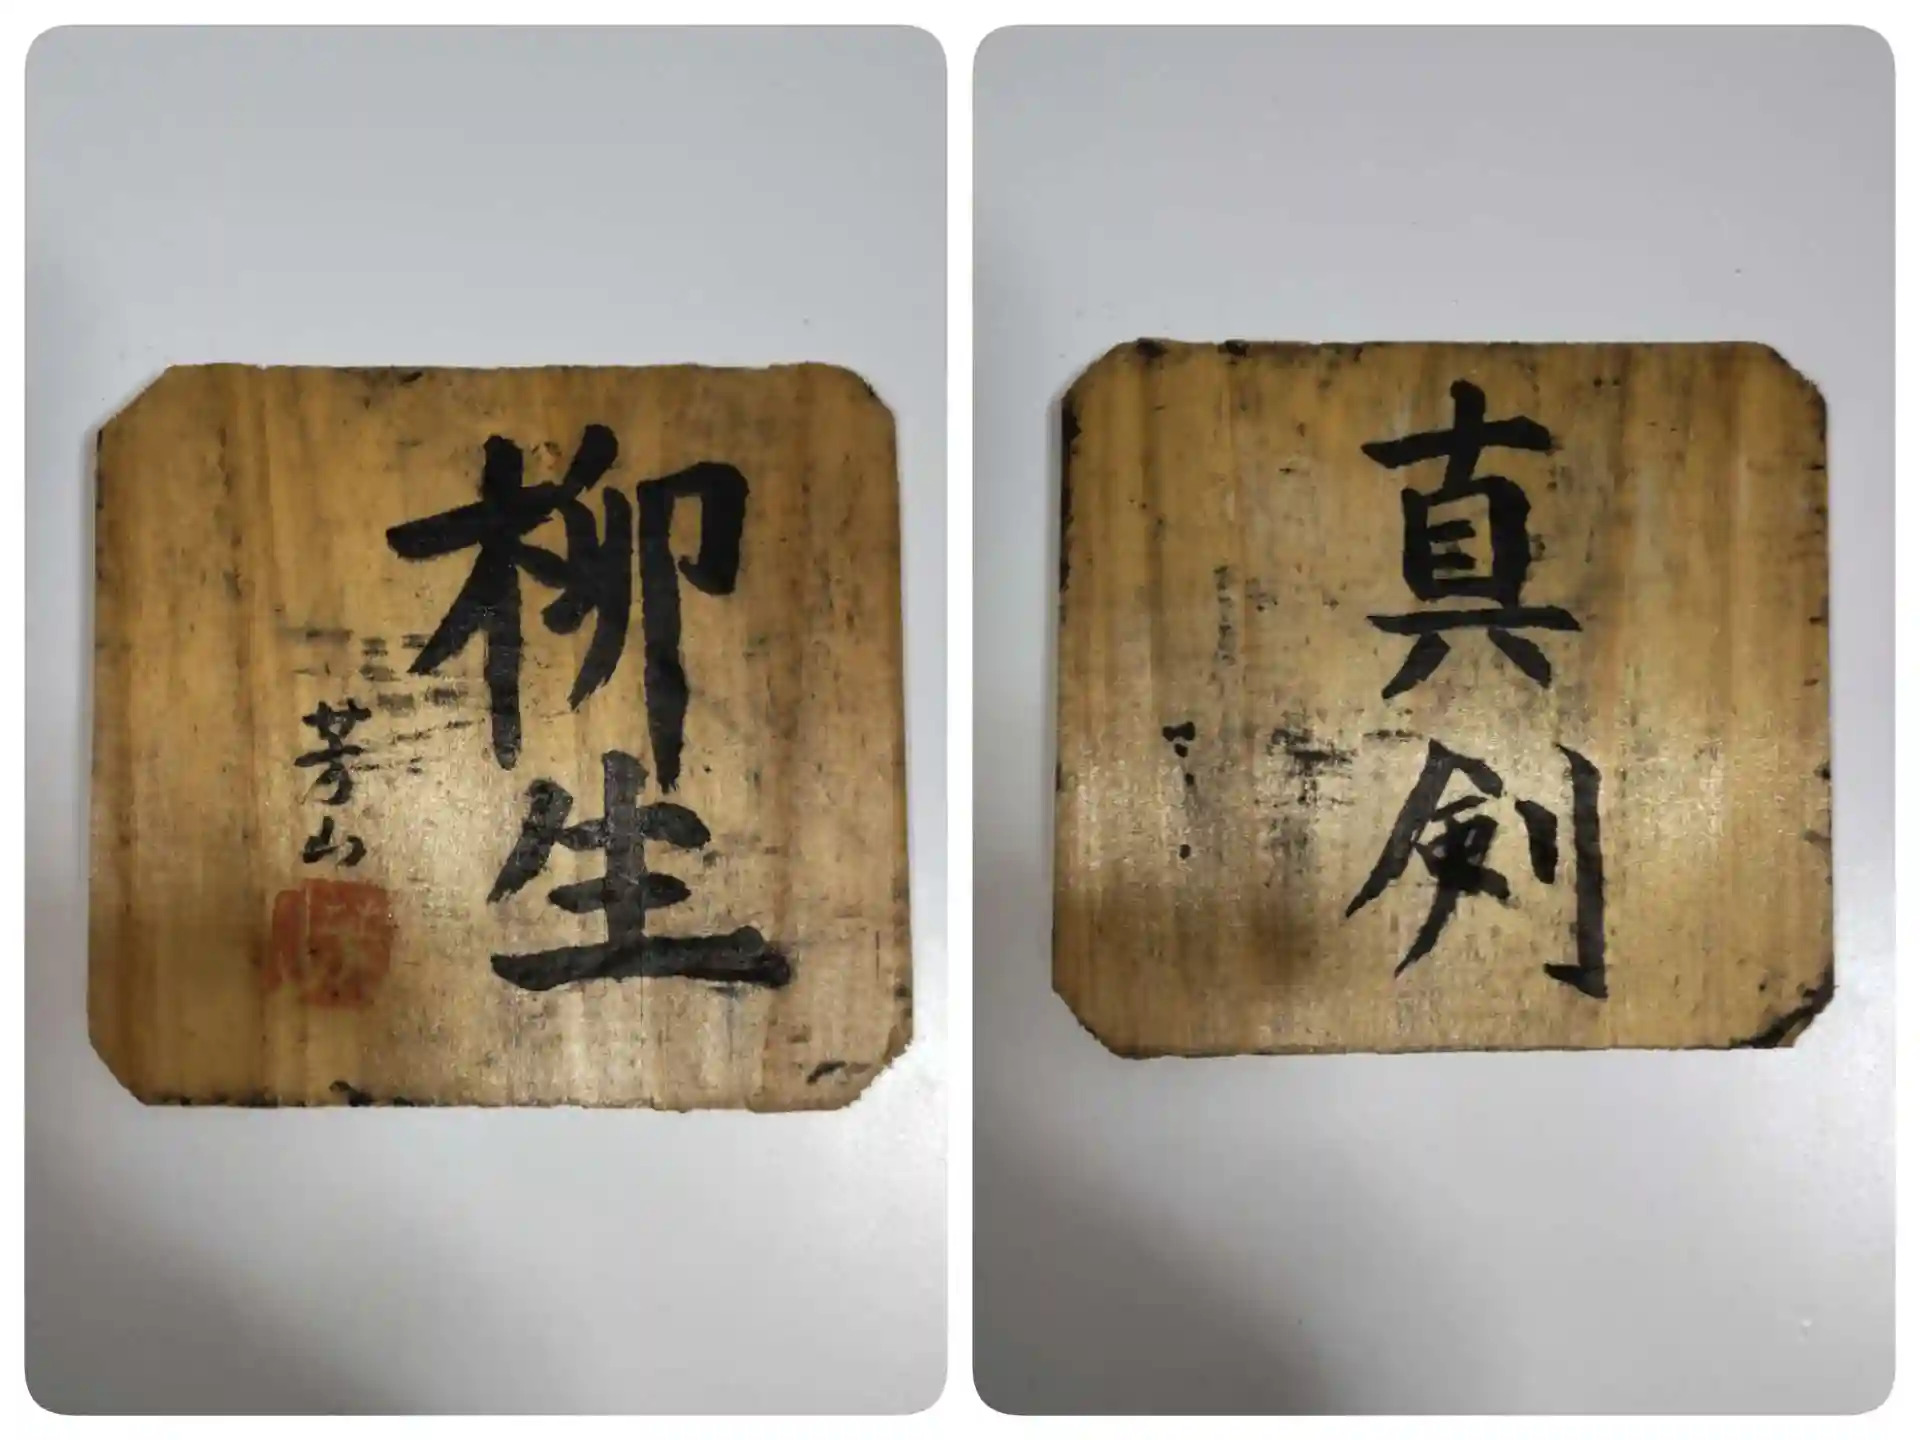 柳生
芳山
真剣